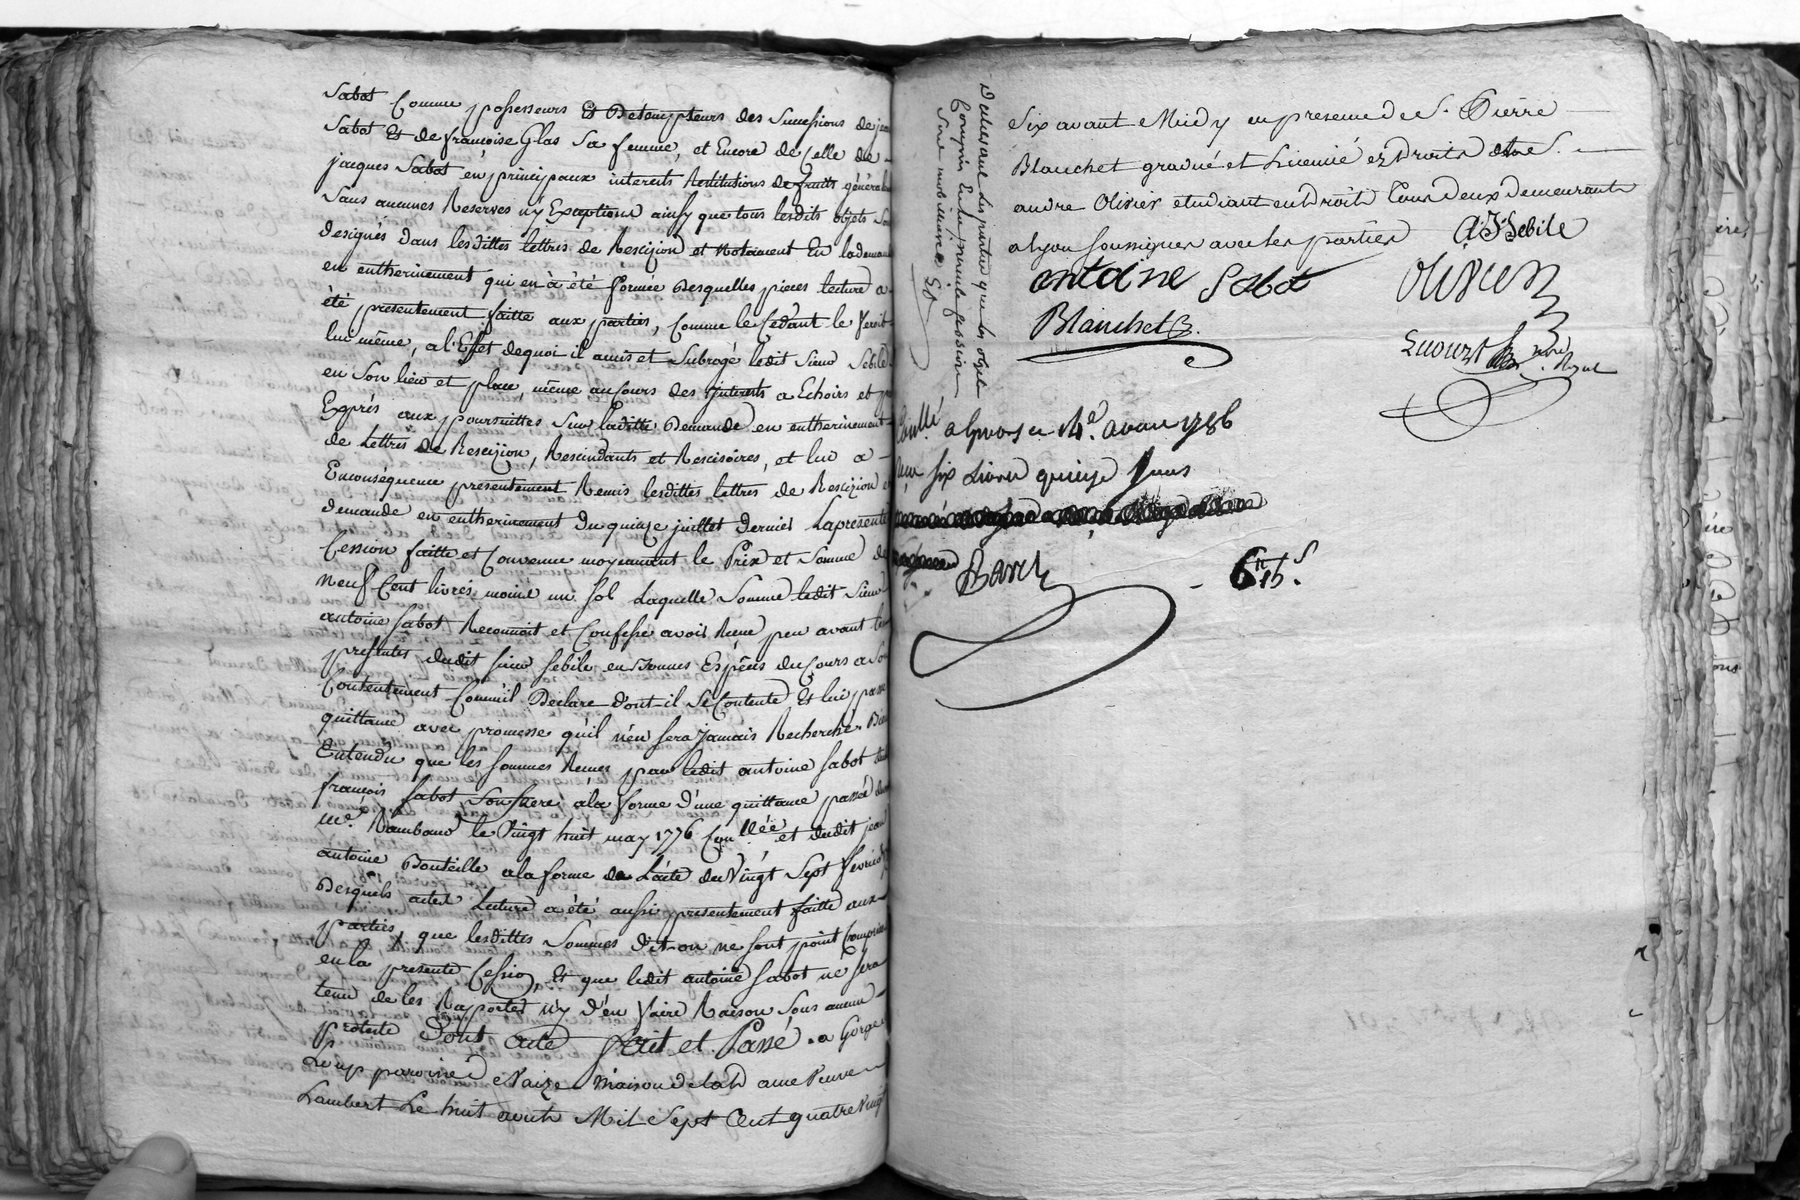 Sabot Comme possesseurs Et Detempteurs des Successions de jean
Sabot Et de françoise Glas Sa femme, et Encore de Celle de
jacques Sabot en principaux interests Restitutions de fruits générale
Sans aucunes Reserves n'y Exceptions ainsy que tous lesdits objets Son
designés dans lesdittes lettres de Rescizion et Notament En lademan
en entherinement qui en à été formée Desquelles pieces lecture a
été presentement faitte aux parties, Comme le Cedant le
lui même, a l'Effet dequoi il a mis et Subrogé ledit Sieur Sebile
en Son lieu et place, même au Cours des jnterests a Echoirs et
Exprés aux poursuittes Sur laditte Demande en entherinement
de Lettres de Rescizion, Rescindants et Rescisoires, et lui a
Enconséquence presentement Remis lesdittes lettres de Rescizion e
demande en entherinement Du quinze juillet Dernier Lapresente
Cession faitte et Convenue moyennant le Prix et Somme de
neuf Cent livres moins un sol Laquelle Somme ledit Sieur
antoine Sabot Reconnoit et Confesse avoir Reçue peu avant les
presentes dudit sieur Sebile en Bonnes Espêces du Cours a Son
Contentement Comm'il Déclare Dont il Se Contente Et lui passe
quittance avec promesse qu'il n'en sera jamais Recherché. Bien
Entendu que les sommes Reçues par ledit antoine Sabot dudt
françois Sabot Son frere a la forme D'une quittance passée devant
me. Rambaud le Vingt huit may 1776 Con.llée et dudit jean
antoine Bouteille a la forme de L'acte du Vingt Sept fevrier
Desquels actes Lecture a été aussi presentement faitte aux
parties, que lesdittes Sommes dit-on ne sont point Comprise
en la presente Cession, Et que ledit antoine Sabot ne sera
tenu de les Raporter n'y d'en faire Raison Sous aucun
prétexte Dont acte fait et Passé a Gorge
Loup paroisse Vaize Maison de lad ame Veuve
Lambert Le huit aoust Mil Sept Cent quatre Vingt
Declarant les parties que les objets
Compris En la presente Cession
Sont mobiliers
Six avant Midy en presence de S. Pierre
Blanchet gradué et Licencié ez Droits et S.
andre Olivier etudiant en Droit Tous deux demeurants
a Lyon soussignés avec les parties
A J Sebile
antoine Sabot
Olivier
Blanchet
nore Royal
Conllé a Lyon le 14e. aoust 1786
Reçu six Livres quinze sous
Barch
6tt 15s.